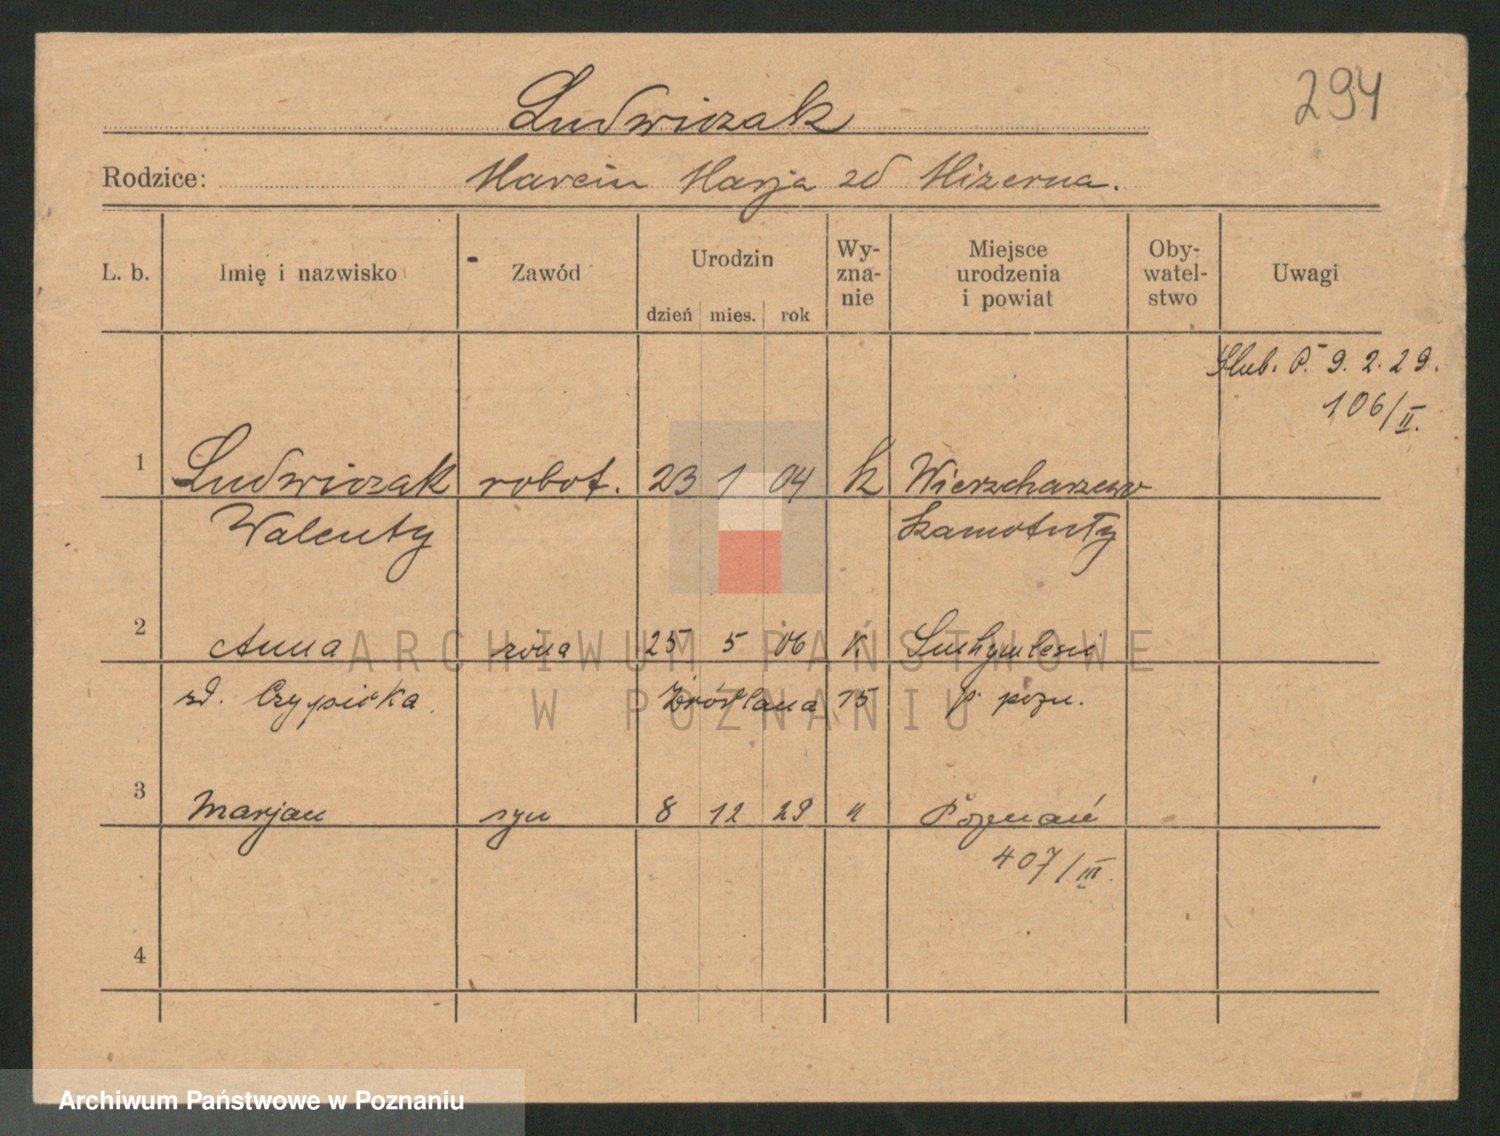 Ludwiczak
294
Rodzice: Marcin Marja zd Mizerna.
L. b. Imię i nazwisko Zawód Urodzin Wyznanie Miejsce urodzenia i powiat Obywatelstwo Uwagi
dzień mies. rok
Ślub. P. 9. 2. 29.
106/II.
1 Ludwiczak robot. 23 1 04 k Wierzcharzewo
Walenty Szamotuły
2 Anna żona 25 5 06 k.
zd. Źródlana 15 p. pozn.
3 Marjan syn 8 12 29 k Poznań
407/III.
4
ARCHIWUM PAŃSTWOWE
W POZNANIU
Archiwum Państwowe w Poznaniu